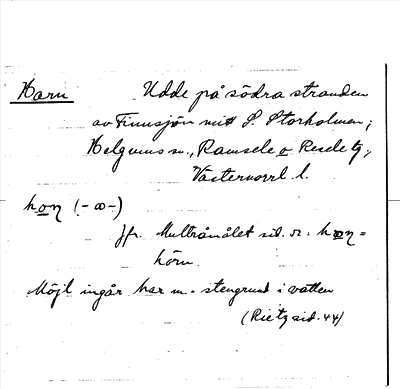 Harn Udde på södra stranden
av Finnsjön mitt S. Storholmen;
Helgums sn., Ramsele o Resele tg,
Västernorrl. l.
hon (-œ-)
Jfr. Multråmålet sid. 52: hon =
hörn.
Möjl ingår har m. stengrund i vatten
(Rietz sid. 44)